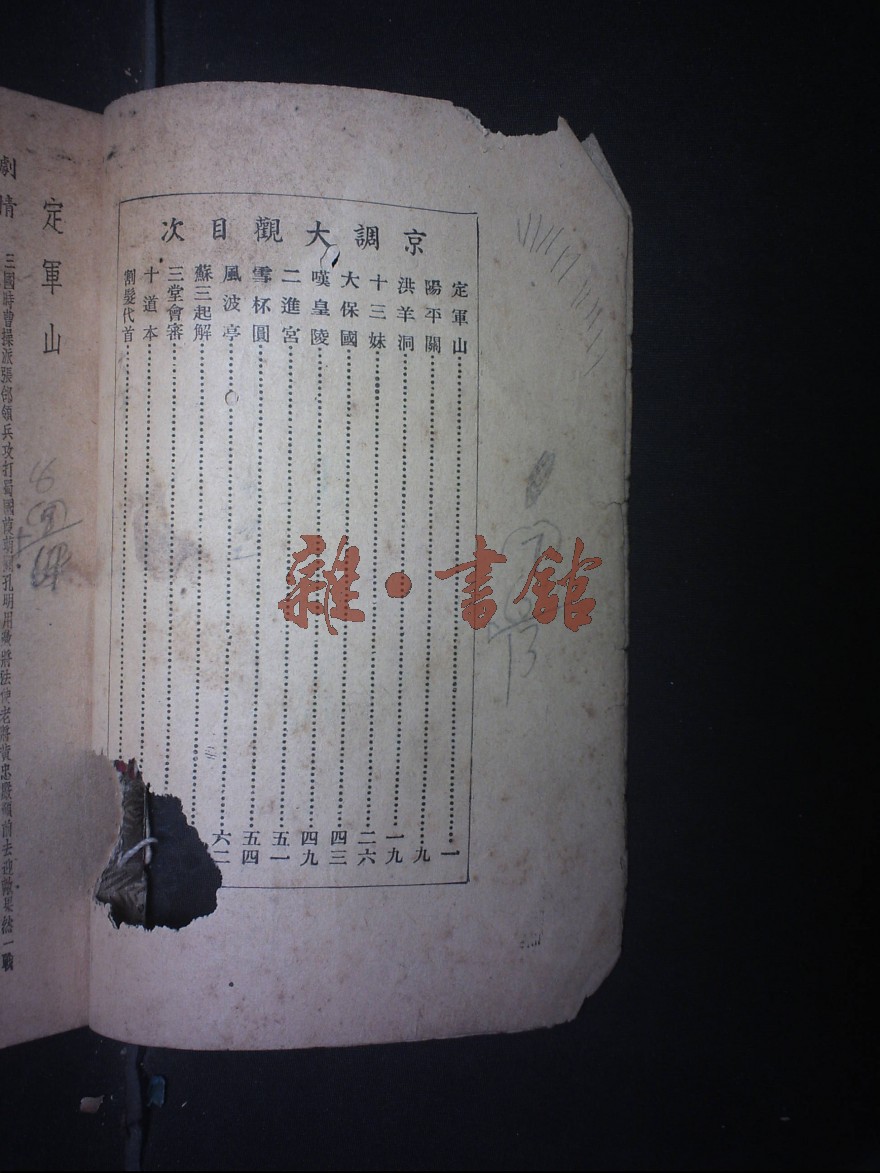 京調大觀目次
定軍山 一
陽平關 九
洪羊洞 一九
十三妹 二六
大保國 四三
嘆皇陵 四九
二進宮 五一
雪杯圓 五四
風波亭 六二
蘇三起解
三堂會審
十道本
割髮代首
定軍山
劇情 三國時曹操派張郃領兵攻打蜀國葭萌關孔明用激將法使老將黃忠嚴顏前去迎敵果然一戰
雜·書館
13